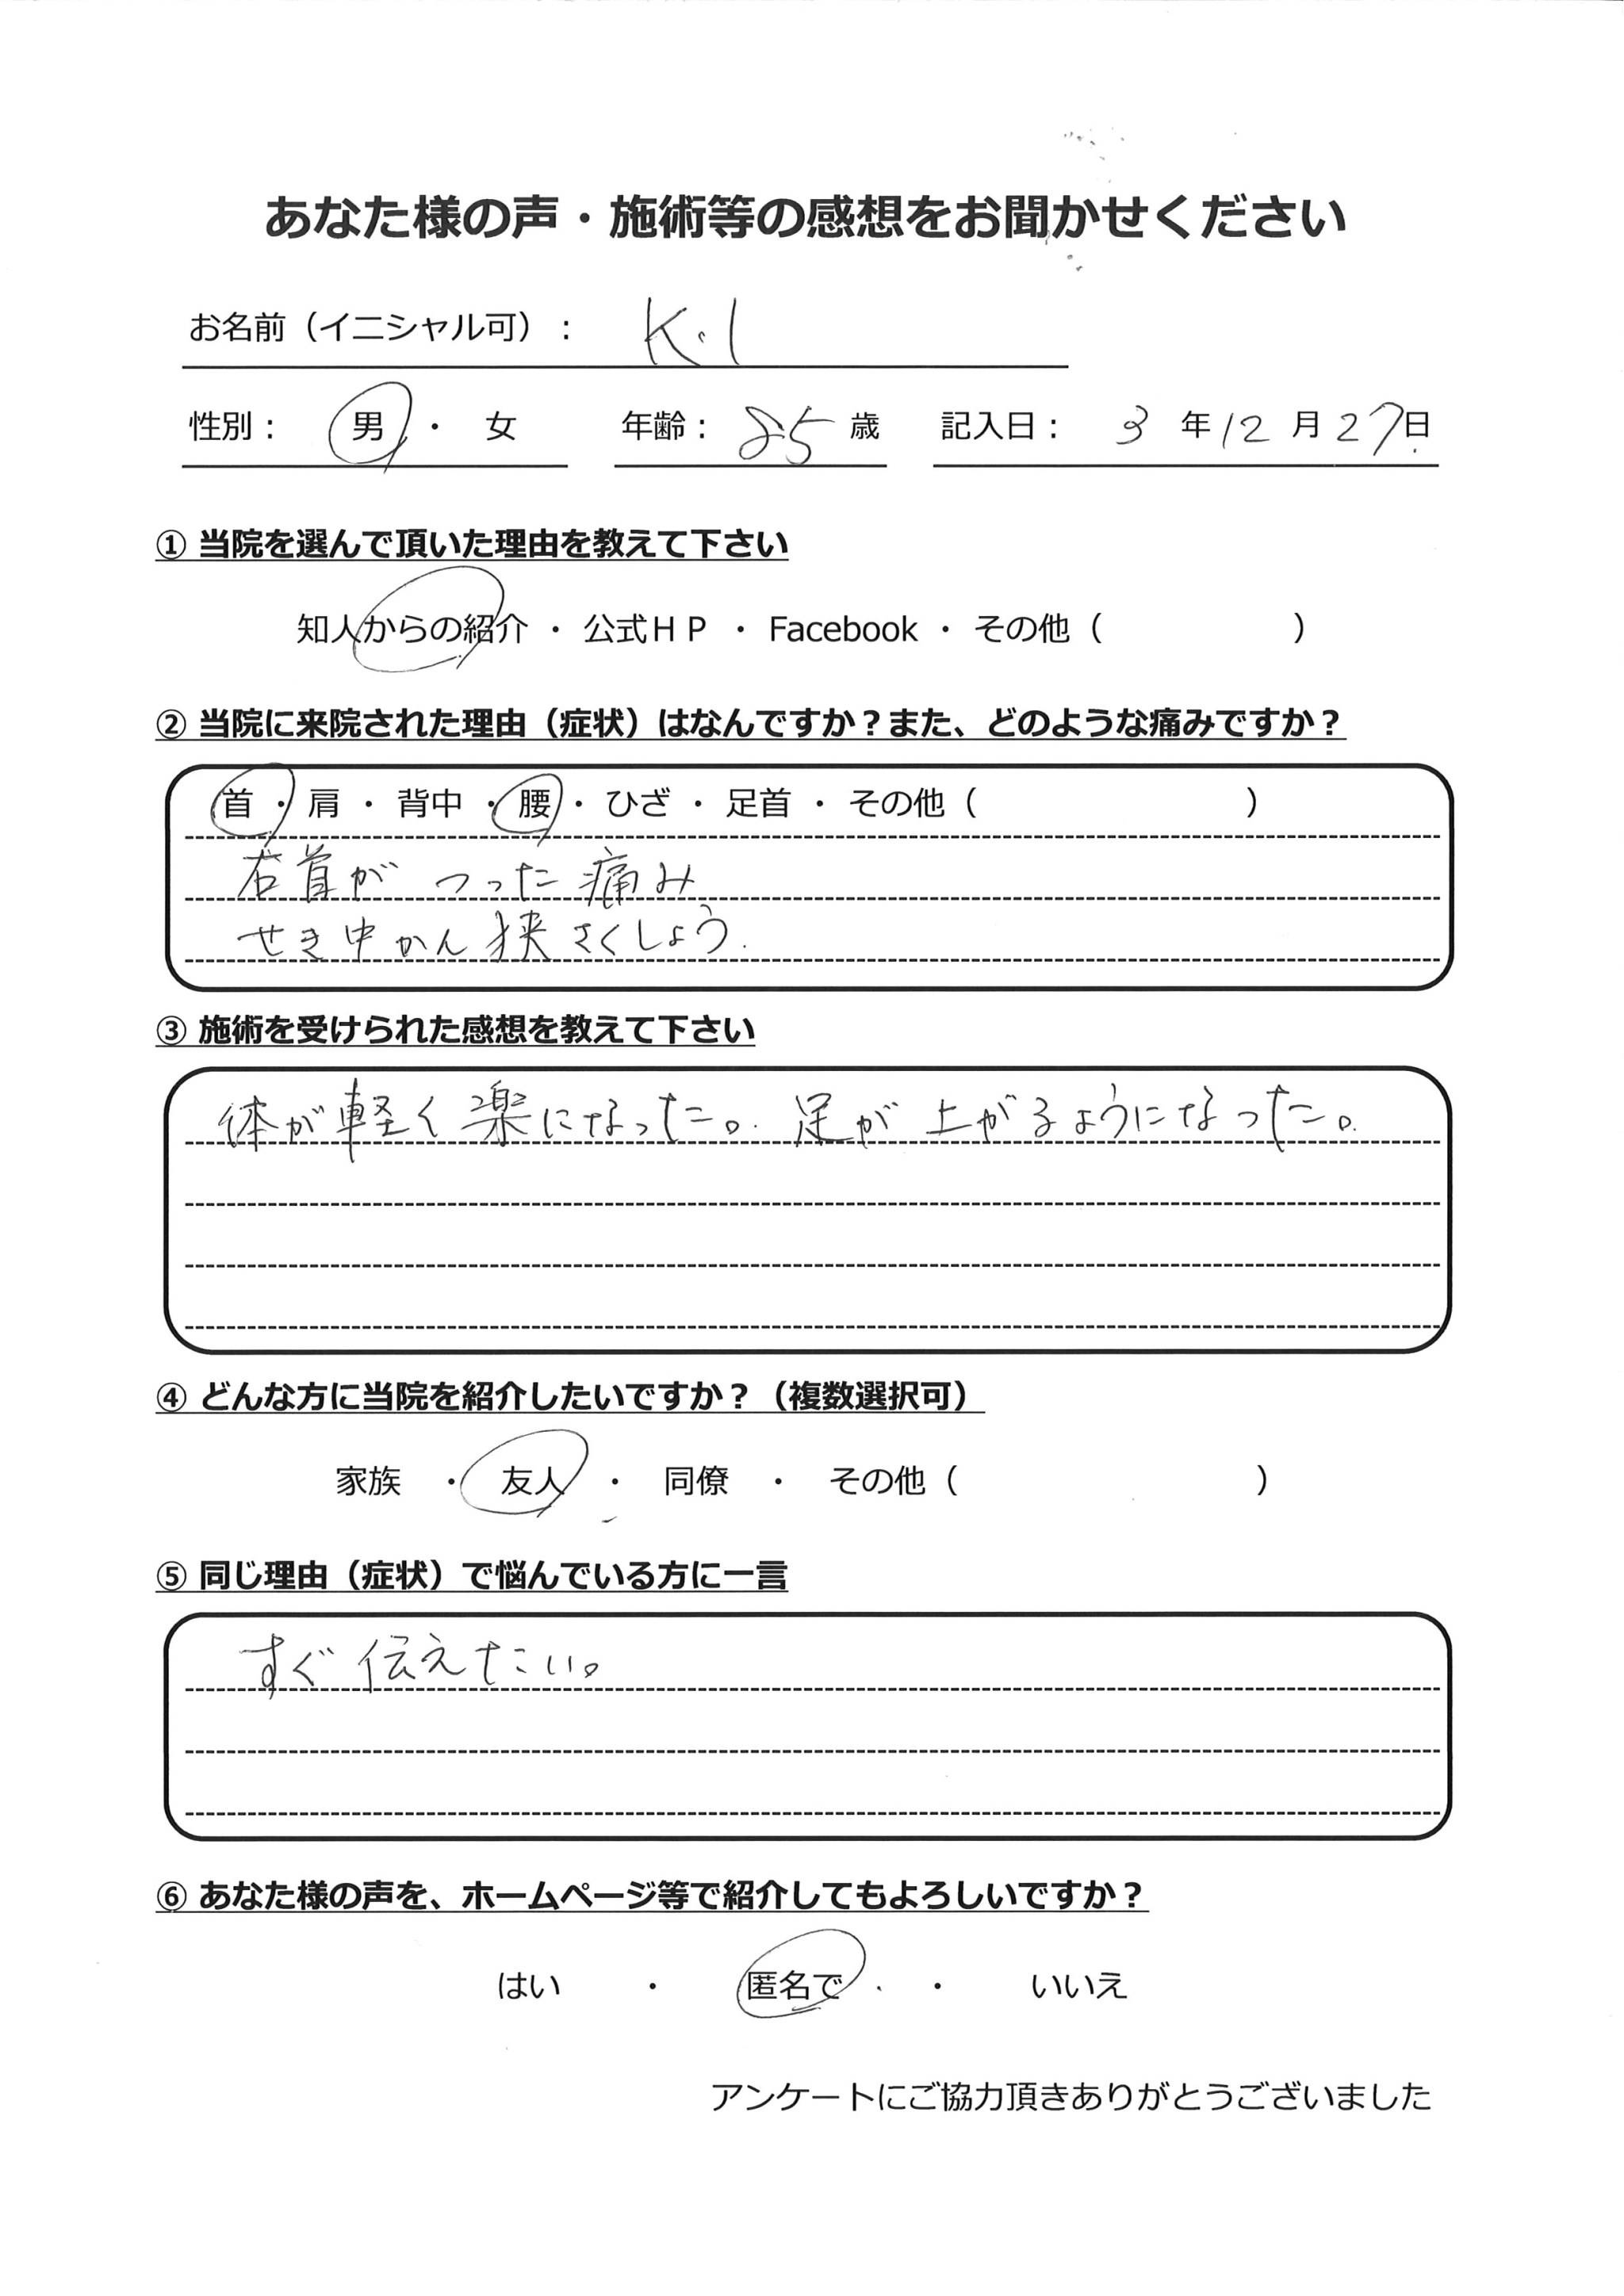 あなた様の声・施術等の感想をお聞かせください
お名前（イニシャル可）： K.I
性別： 男 ・ 女 年齢： 85 歳 記入日： 3 年 12 月 27 日
① 当院を選んで頂いた理由を教えて下さい
知人からの紹介 ・ 公式ＨＰ ・ Facebook ・ その他（ ）
② 当院に来院された理由（症状）はなんですか？また、どのような痛みですか？
首 ・ 肩 ・ 背中 ・ 腰 ・ ひざ ・ 足首 ・ その他（ ）
右首が つった 痛み
せき中かん 狭さくしょう.
③ 施術を受けられた感想を教えて下さい
体が軽く 楽になった。足が 上がるようになった。
④ どんな方に当院を紹介したいですか？（複数選択可）
家族 ・ 友人 ・ 同僚 ・ その他（ ）
⑤ 同じ理由（症状）で悩んでいる方に一言
すぐ 伝えたい。
⑥ あなた様の声を、ホームページ等で紹介してもよろしいですか？
はい ・ 匿名で ・ いいえ
アンケートにご協力頂きありがとうございました